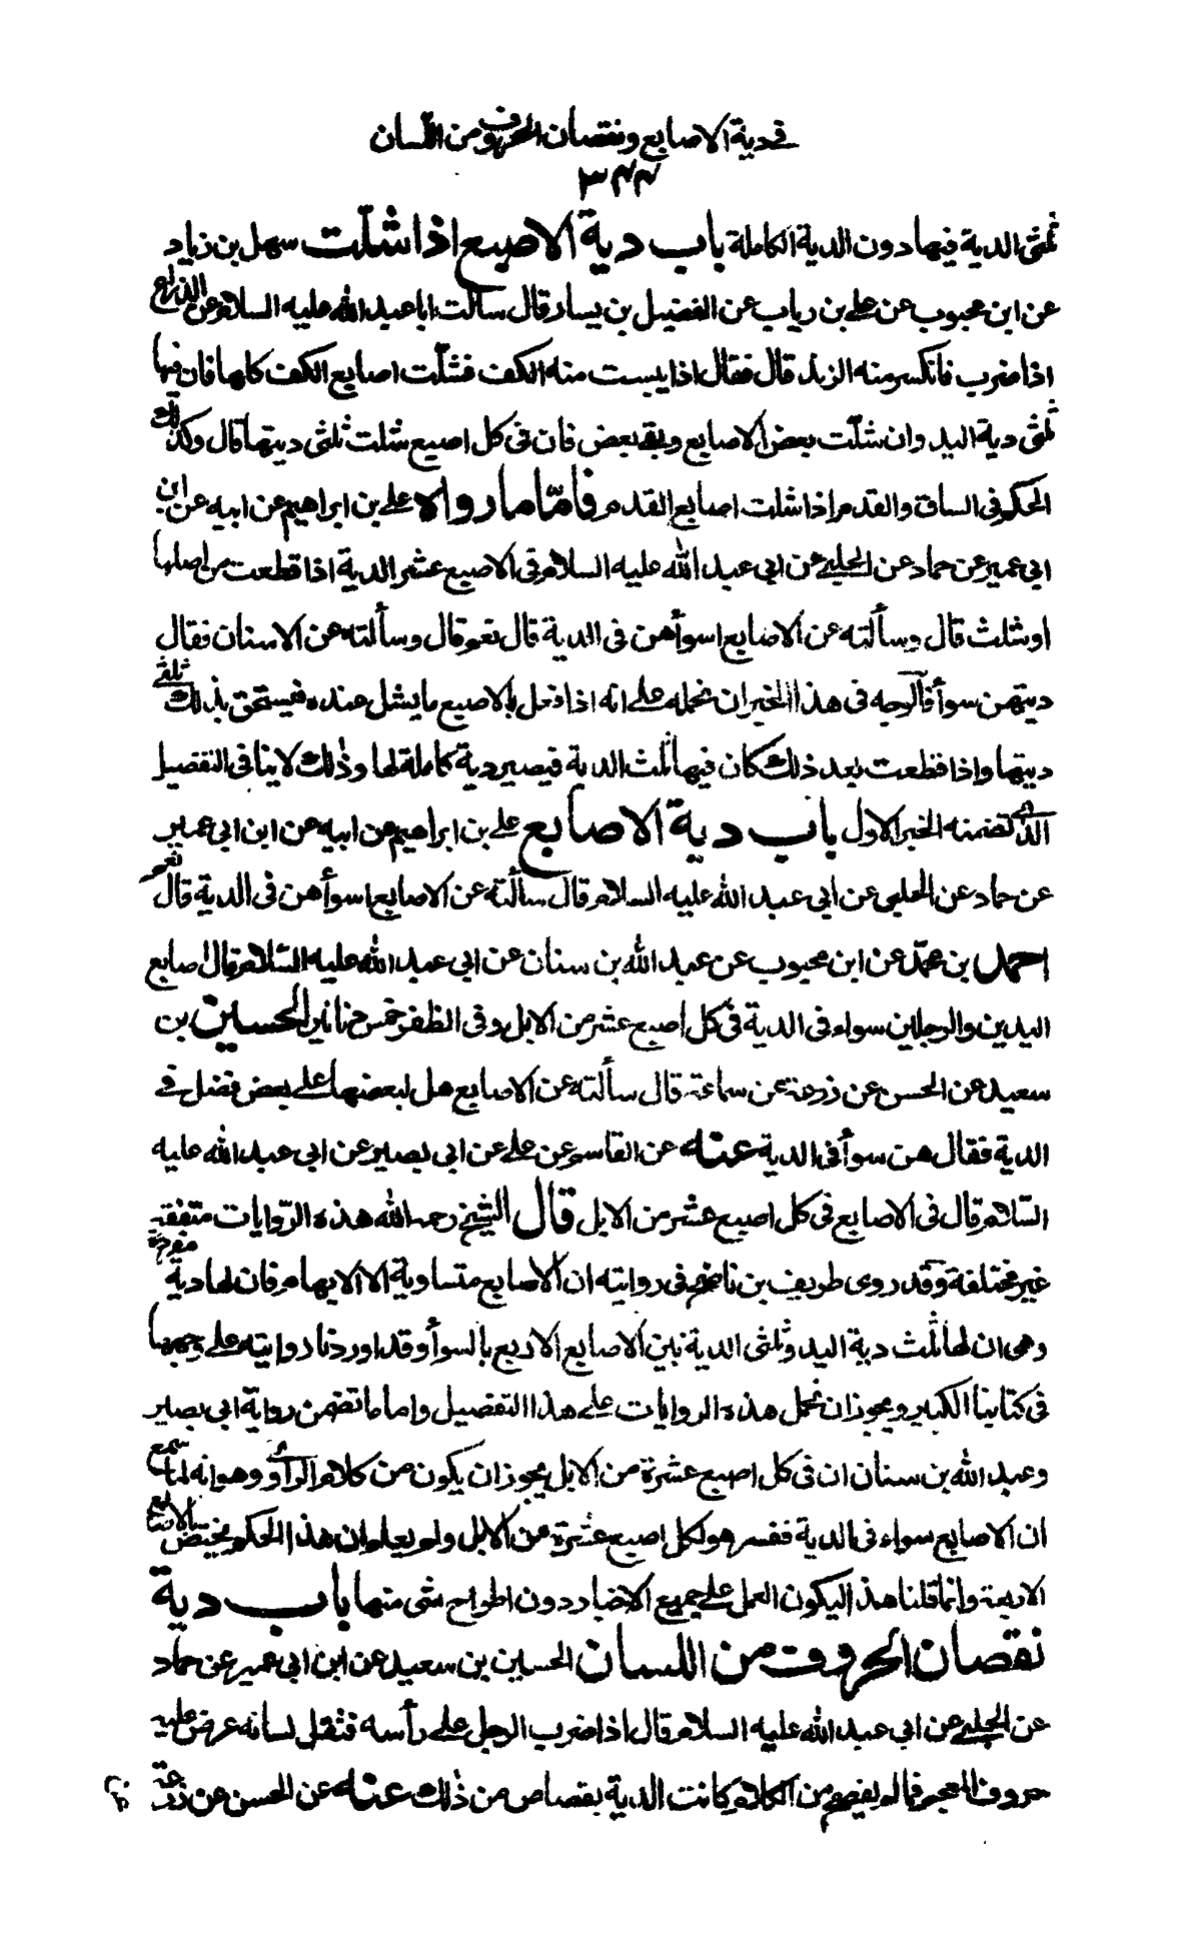 في دية الاصابع ونقصان الحروف من اللسان
٣٤٤
ثلثى الدية فيها دون الدية الكاملة باب دية الاصبع اذا شلّت سهل بن زياد
عن ابن محبوب عن على بن رياب عن الفضيل بن يسار قال سالت ابا عبد الله عليه السلام عن الذراع
اذا ضرب فانكسر منه الزند قال فقال اذا يبست منه الكف فشلّت اصابع الكف كلها فان فيها
ثلثى دية اليد وان شلّت بعض الاصابع وبقى بعض فان فى كل اصبع شلت ثلثى ديتها قال وكذلك
الحكم فى الساق والقدم اذا شلت اصابع القدم فامّا ما رواه على بن ابراهيم عن ابيه عن ابن
ابي عمير عن حماد عن الحلبى عن ابي عبد الله عليه السلام فى الاصبع عشر الدية اذا قطعت من اصلها
او شلت قال وسألته عن الاصابع اسوأ هن فى الدية قال نعم قال وسألته عن الاسنان فقال
ديتهن سوأ فالوجه فى هذا الخبر ان نحمله على انه اذا فعل بالاصبع ما يشل عنده فيستحق بذلك ثلثى
ديتها واذا قطعت بعد ذلك كان فيها ثلث الدية فيصير دية كاملة لها وذلك لا ينافى التفصيل
الذى تضمنه الخبر الاول باب دية الاصابع على بن ابراهيم عن ابيه عن ابن ابي عمير
عن حماد عن الحلبى عن ابي عبد الله عليه السلام قال سألته عن الاصابع اسوأ هن فى الدية قال نعم
احمد بن محمّد عن ابن محبوب عن عبد الله بن سنان عن ابي عبد الله عليه السّلام قال اصابع
اليدين والرجلين سواء فى الدية فى كل اصبع عشر من الابل وفى الظفر خمس دنانير الحسين بن
سعيد عن الحسن عن زرعة عن سماعة قال سألته عن الاصابع هل لبعضها على بعض فضل في
الدية فقال هن سوأ فى الدية عنه عن القاسم عن على عن ابى بصير عن ابى عبد الله عليه
السّلام قال فى الاصابع فى كل اصبع عشر من الابل قال الشيخ رحمه الله هذه الرّوايات متفقة
غير مختلفة وقد روى طريف بن ناصح فى روايته ان الاصابع متساوية الا الابهام فان لها دية مفردة
وهى ان لها ثلث دية اليد وثلثى الدية بين الاصابع الاربع بالسوأ وقد اوردنا روايته على وجهها
فى كتابنا الكبير ويجوز ان نحمل هذه الروايات على هذا التفصيل واما ما تضمن رواية ابى بصير
وعبد الله بن سنان ان فى كل اصبع عشرة من الابل يجوز ان يكون من كلام الرأوى وهو انه لما سمع
ان الاصابع سواء فى الدية ففسر هو لكل اصبع عشرة من الابل ولم يعلم ان هذا الحكم يختص بالاصابع
الاربعة وانما قلنا هذا ليكون العمل على جميع الاخبار دون اطراح شى منها باب دية
نقصان الحروف من اللسان الحسين بن سعيد عن ابن ابى عمير عن حماد
عن الحلبى عن ابي عبد الله عليه السلام قال اذا ضرب الرجل على رأسه فثقل لسانه عرض عليه
حروف المعجم فما لم يفصح من الكلام كانت الدية بقصاص من ذلك عنه عن الحسن عن زرعة